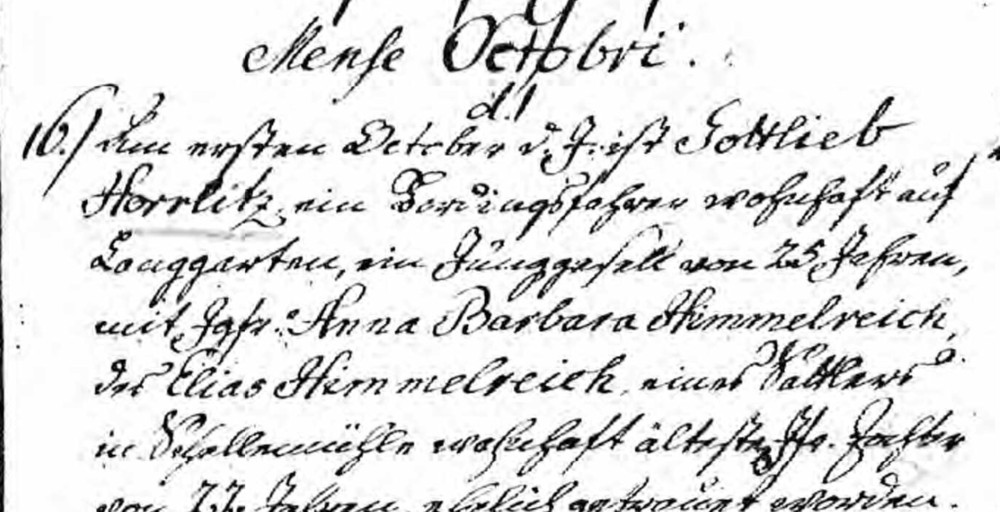 Mense Octobri.
d. 1
16.) Am ersten October d. J. ist Gottlieb
Horrlitz, ein Bordingsfahrer wohnhaft auf
Langgarten, ein Junggesell von 25 Jahren,
mit Jgfr. Anna Barbara Himmelreich,
des Elias Himmelreich, eines Sattlers
in Schellemühle wohnhaft älteste Tochter
von 22 Jahren, ehelich getrauet worden.